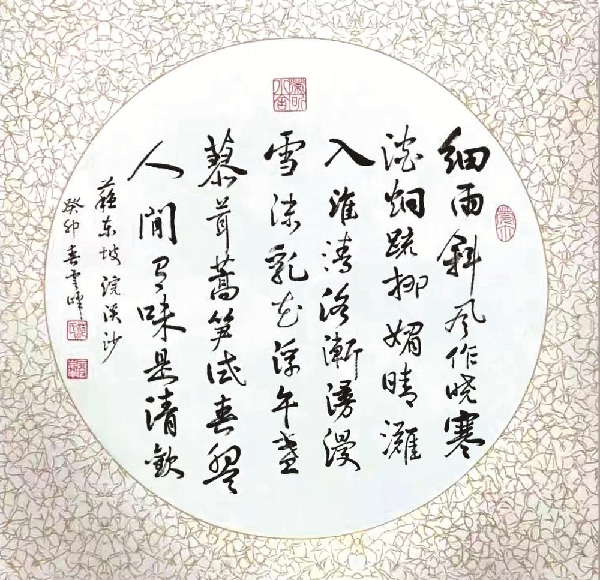 細雨斜风作晓寒
淡烟疏柳媚晴灘
入淮清洛漸漫漫
雪沫乳花浮午盏
蓼茸蒿笋试春盤
人間有味是清歓
蘓东坡 浣溪沙
癸卯春雲峰